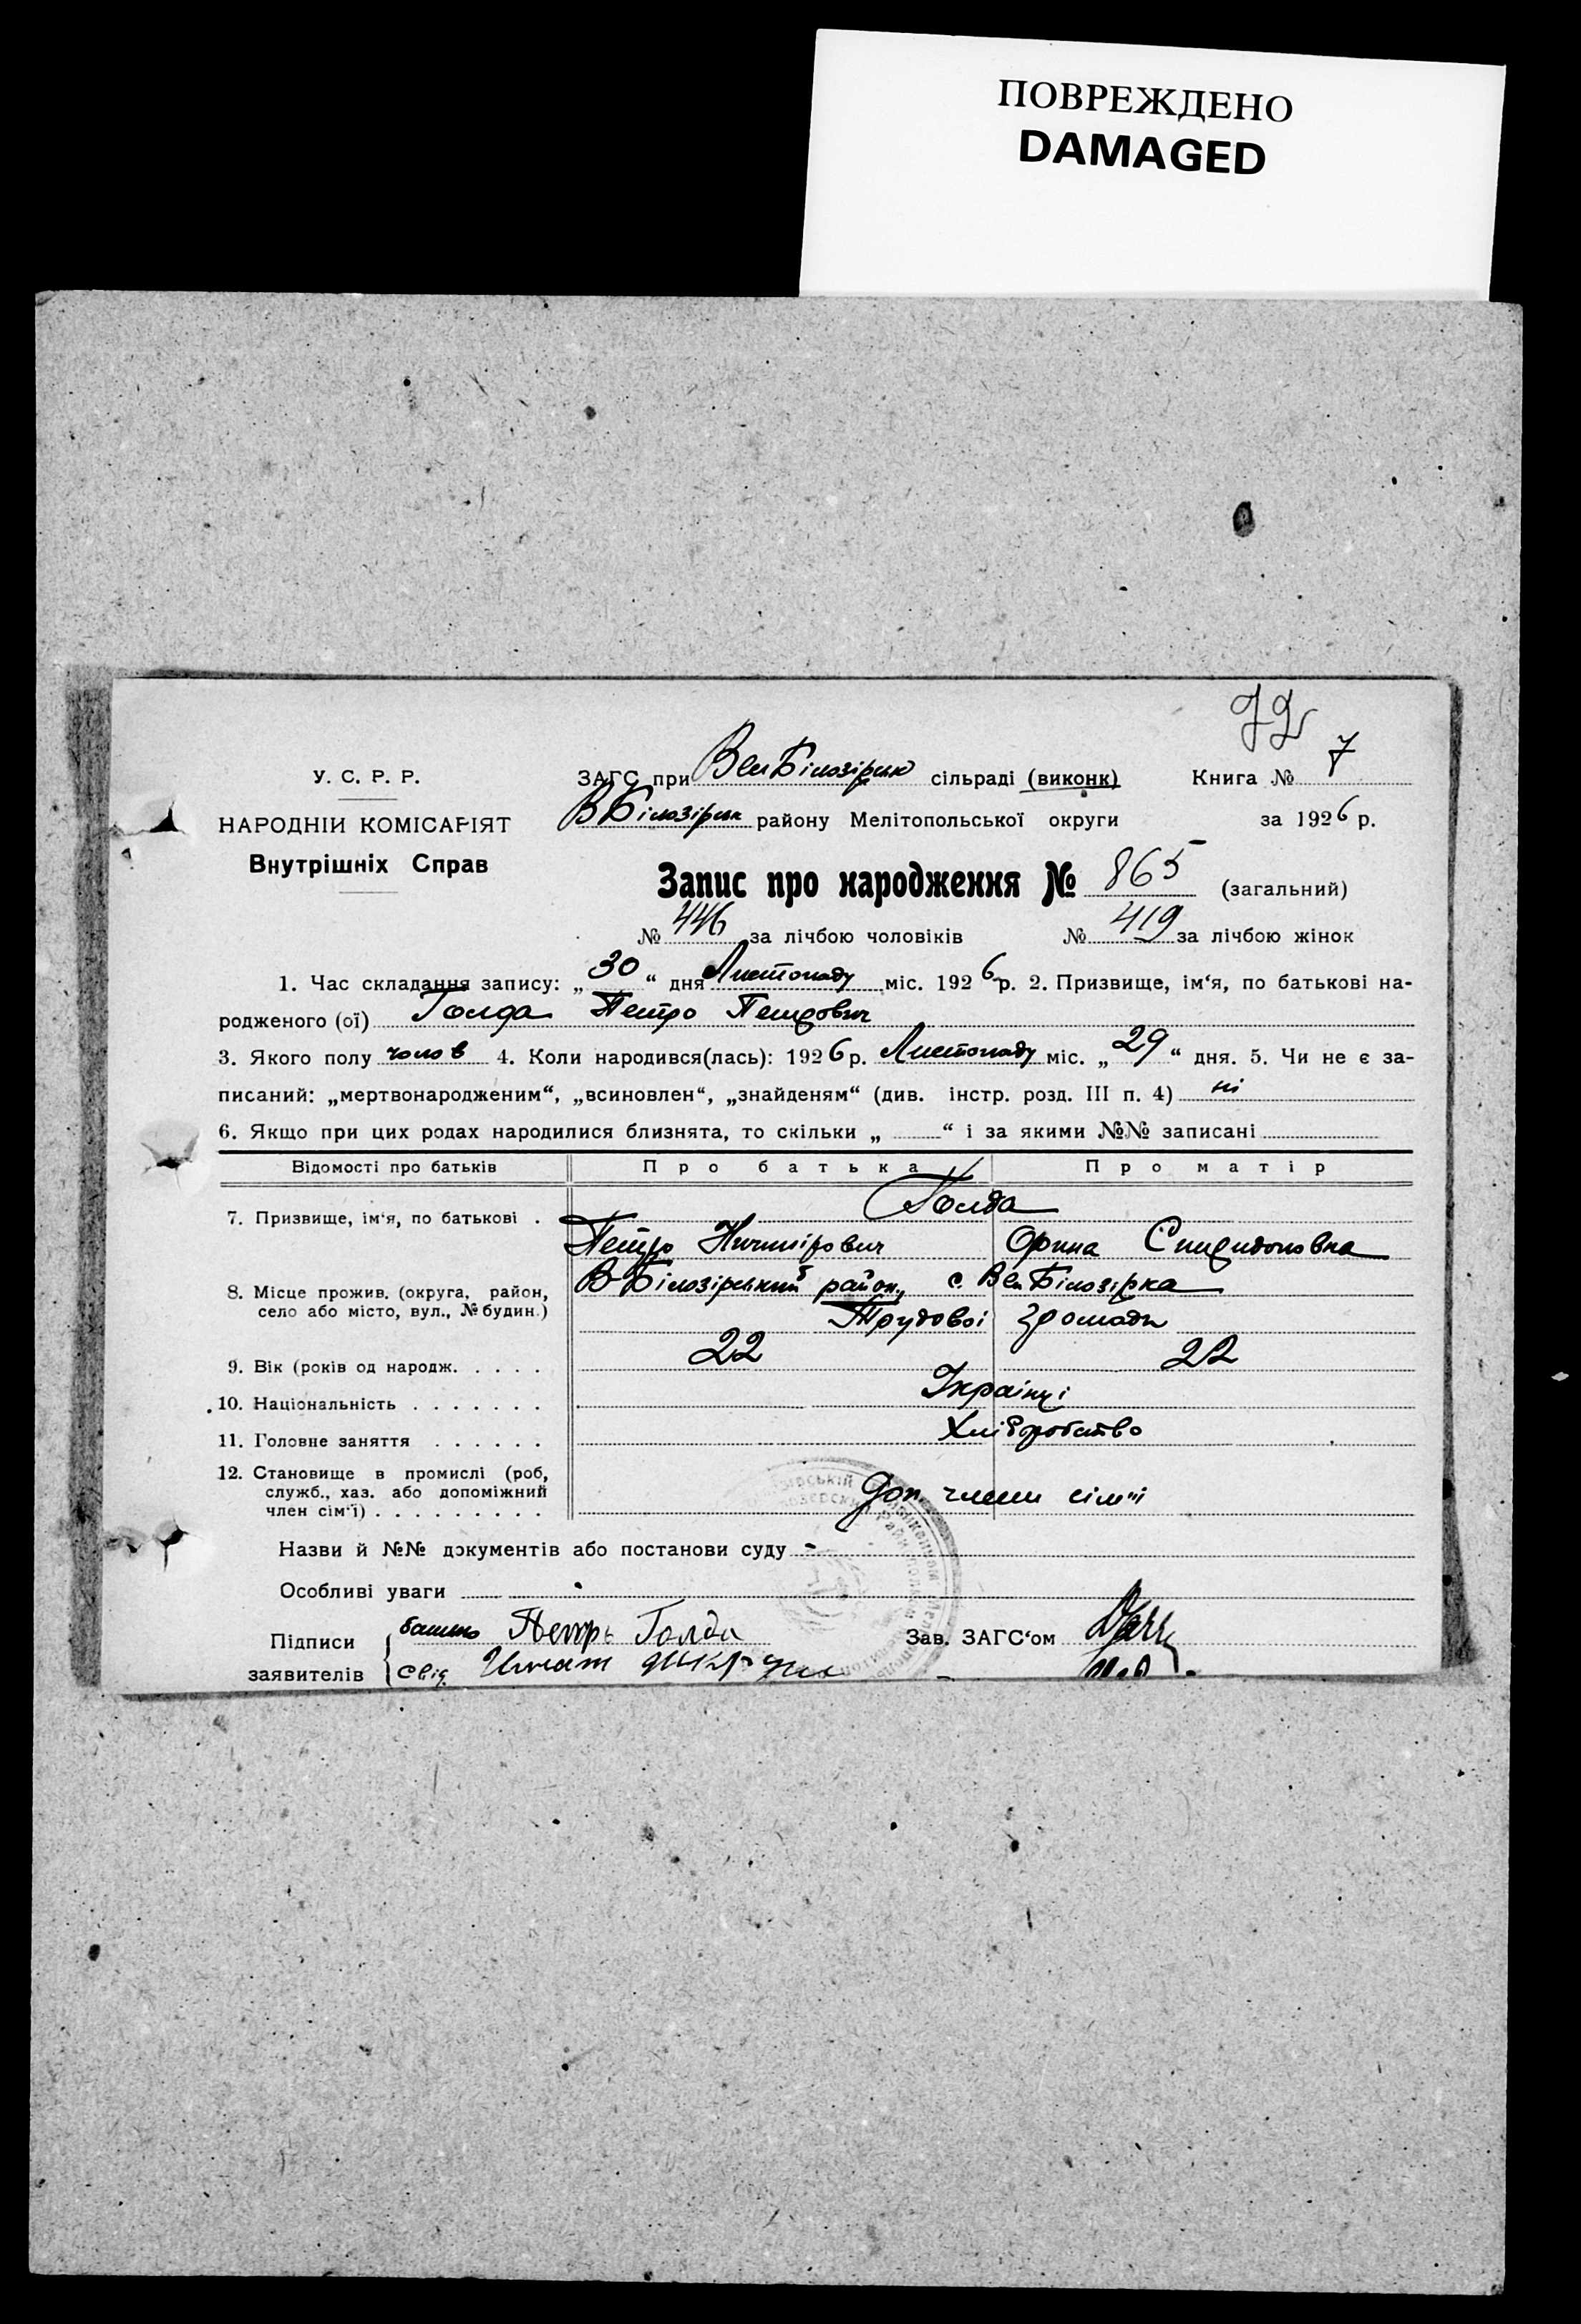 ПОВРЕЖДЕНО
DAMAGED
72
У. С. Р. Р.
НАРОДНІЙ КОМІСАРІЯТ
Внутрішніх Справ
ЗАГС при Вел Білозірськ сільраді (виконк) Книга № 7
В Білозірськ району Мелітопольської округи за 1926 р.
Запис про народження № 865 (загальний)
№ 446 за лічбою чоловіків № 419 за лічбою жінок
1. Час складання запису: „30“ дня Листопаду міс. 1926 р. 2. Призвище, ім‘я, по батькові на-
родженого (ої) Голда Петро Петрович
3. Якого полу чолов 4. Коли народився(лась): 1926 р. Листопаду міс. „29“ дня. 5. Чи не є за-
писаний: „мертвонародженим“, „всиновлен“, „знайденям“ (див. інстр. розд. III п. 4) ні
6. Якщо при цих родах народилися близнята, то скільки „ “ і за якими №№ записані
Відомості про батьків Про батька Про матір
7. Призвище, ім‘я, по батькові . Голда
Петро Орина Спиридоновна
8. Місце прожив. (округа, район, село або місто, вул., № будин.) В-Білозірський район, с. Вел Білозірка
Трудової громади
9. Вік (років од народж. . . . . 22 22
10. Національність . . . . . . . Українці
11. Головне заняття . . . . . . Хліборобство
12. Становище в промислі (роб, служб., хаз. або допоміжний член сім‘ї) . . . . . . . . . Доп. члени сім'ї
Назви й №№ документів або постанови суду -
Особливі уваги
Підписи заявителів
батько Петръ Голда
свід. Игнат
Зав. ЗАГС‘ом